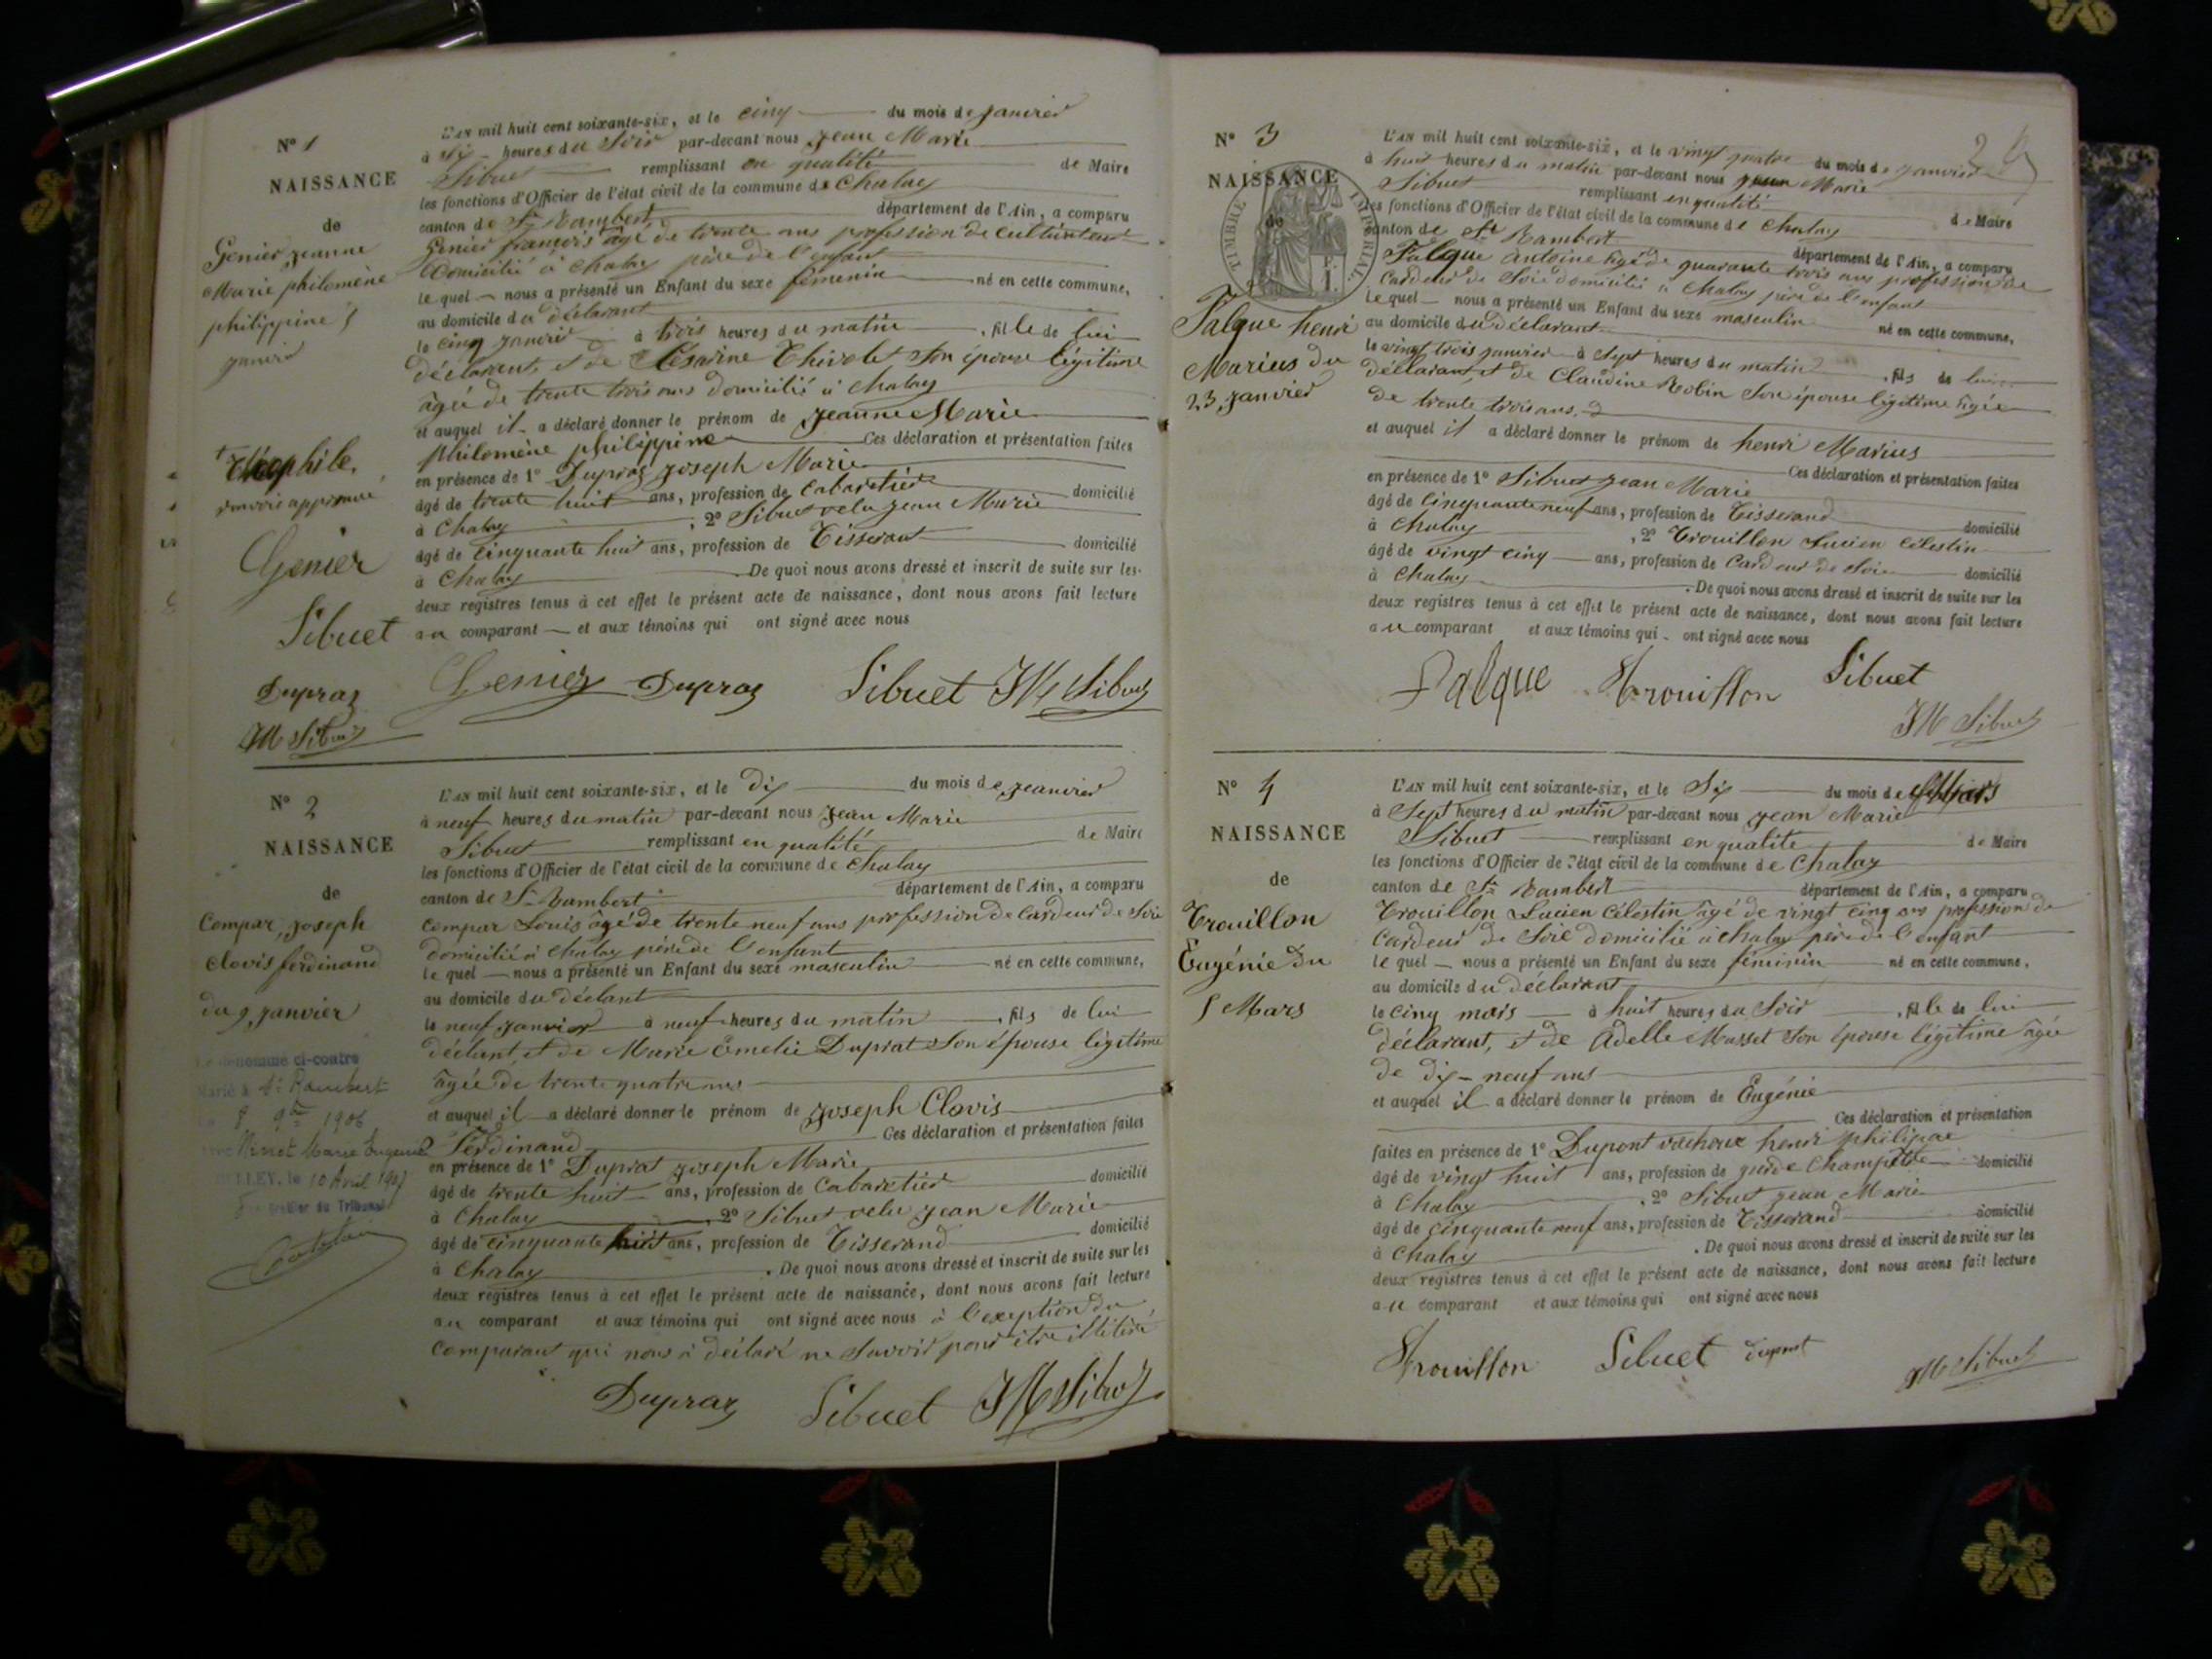 N° 1
NAISSANCE
de
Genier jeanne
Marie philomène
philippine 5
janvier
Théophile,
renvoi approuvé
Genier
Sibuet
Dupraz
JM Sibuet
L'AN mil huit cent soixante-six, et le cinq du mois de janvier
à six heures du soir par-devant nous jean Marie
Sibuet remplissant en qualité de Maire
les fonctions d'Officier de l'état civil de la commune de Chalay
canton de St Rambert département de l'Ain, a comparu
Genier françois âgé de trente ans profession de cultivateur
Domicilié à Chalay père de l'enfant
le quel nous a présenté un Enfant du sexe féminin né en cette commune,
au domicile du déclarant
le cinq janvier à trois heures du matin , fille de lui
déclarant, et de Césarine Chivolet son épouse légitime
âgée de trente trois ans domicilié à Chalay
et auquel il a déclaré donner le prénom de jeanne Marie
philomène philippine Ces déclaration et présentation faites
en présence de 1° Dupraz joseph Marie
âgé de trente huit ans, profession de Cabaretier domicilié
à Chalay ; 2° Sibuet velu jean Marie
âgé de cinquante huit ans, profession de Tisserant domicilié
à Chalay . De quoi nous avons dressé et inscrit de suite sur les
deux registres tenus à cet effet le présent acte de naissance, dont nous avons fait lecture
au comparant et aux témoins qui ont signé avec nous
Genier Dupraz Sibuet JM Sibuet
N° 2
NAISSANCE
de
Compar, joseph
Clovis ferdinand
du 9 janvier
Le dénommé ci-contre
Marié à St Rambert
8 9bre 1906
avec Ninet Marie Eugénie
BELLEY, le 10 Avril 1907
Greffier du Tribunal
L'AN mil huit cent soixante-six, et le dix du mois de jeanvier
à neuf heures du matin par-devant nous jean Marie
Sibuet remplissant en qualité de Maire
les fonctions d'Officier de l'état civil de la commune de Chalay
canton de St Rambert département de l'Ain, a comparu
Compar Louis âgé de trente neuf ans profession de Cardeur de Soie
domicilié à Chalay père de l'enfant
le quel nous a présenté un Enfant du sexe masculin né en cette commune,
au domicile du déclant
le neuf janvier à neuf heures du matin , fils de lui
déclant, et de Marie Emelie Duprat son épouse légitime
âgée de trente quatre ans
et auquel il a déclaré donner le prénom de joseph Clovis
Ferdinand Ces déclaration et présentation faites
en présence de 1° Duprat joseph Marie
âgé de trente huit ans, profession de Cabaretier domicilié
à Chalay , 2° Sibuet velu jean Marie
âgé de cinquante huit ans, profession de Tisserand domicilié
à Chalay . De quoi nous avons dressé et inscrit de suite sur les
deux registres tenus à cet effet le présent acte de naissance, dont nous avons fait lecture
au comparant et aux témoins qui ont signé avec nous à l'exeption du
comparant qui nous à déclaré ne savoir pour être illitéré
Dupraz Sibuet JM Sibuet
N° 3
NAISSANCE
de
TIMBRE IMPÉRIAL
Falque henri
Marius du
23 janvier
L'AN mil huit cent soixante-six, et le vingt quatre du mois de janvier
à huit heures du matin par-devant nous jean Marie
Sibuet remplissant en qualité de Maire
les fonctions d'Officier de l'état civil de la commune de Chalay
canton de St Rambert département de l'Ain, a comparu
Falque antoine âgé de quarante trois ans profession de
Cardeur de Soie domicilié à Chalay père de l'enfant
le quel nous a présenté un Enfant du sexe masculin né en cette commune,
au domicile du déclarant
le vingt trois janvier à sept heures du matin , fils de lui
déclarant, et de Claudine Robin son épouse légitime âgée
de trente trois ans
et auquel il a déclaré donner le prénom de henri Marius
Ces déclaration et présentation faites
en présence de 1° Sibuet jean Marie
âgé de cinquante neuf ans, profession de Tisserand domicilié
à Chalay , 2° Trouillon Lucien Célestin
âgé de vingt cinq ans, profession de Cardeur de Soie domicilié
à Chalay . De quoi nous avons dressé et inscrit de suite sur les
deux registres tenus à cet effet le présent acte de naissance, dont nous avons fait lecture
au comparant et aux témoins qui ont signé avec nous
Falque Trouillon Sibuet
JM Sibuet
N° 4
NAISSANCE
de
Trouillon
Eugénie du
5 Mars
L'AN mil huit cent soixante-six, et le Six du mois de Mars
à Sept heures du matin par-devant nous jean Marie
Sibuet remplissant en qualité de Maire
les fonctions d'Officier de l'état civil de la commune de Chalay
canton de St Rambert département de l'Ain, a comparu
Trouillon Lucien Célestin âgé de vingt cinq ans profession de
Cardeur de Soie domicilié à Chalay père de l'enfant
le quel nous a présenté un Enfant du sexe féminin né en cette commune,
au domicile du déclarant
le cinq mars à huit heures du Soir , fille de lui
déclarant, et de Adelle Musset son épouse légitime âgée
de dix-neuf ans
et auquel il a déclaré donner le prénom de Eugénie
Ces déclaration et présentation
faites en présence de 1° Dupont vachoux henri philipae
âgé de vingt huit ans, profession de garde Champêtre domicilié
à Chalay , 2° Sibuet jean Marie
âgé de cinquante neuf ans, profession de Tisserand domicilié
à Chalay . De quoi nous avons dressé et inscrit de suite sur les
deux registres tenus à cet effet le présent acte de naissance, dont nous avons fait lecture
au comparant et aux témoins qui ont signé avec nous
Trouillon Sibuet dupont
JM Sibuet